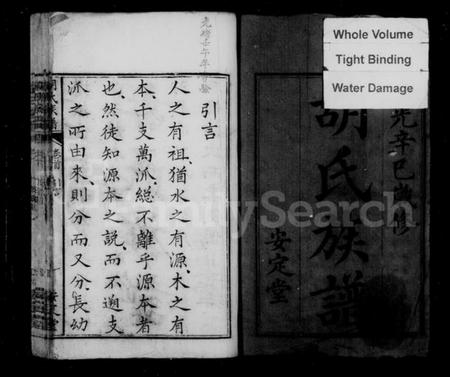 Whole Volume
Tight Binding
Water Damage
辛巳
胡氏族譜
安定堂
引言
人之有祖、猶水之有源、木之有
本、千支萬派、總不離乎源本者
也、然徒知源本之說、而不遡支
派之所由來、則分而又分、長幼
FamilySearch